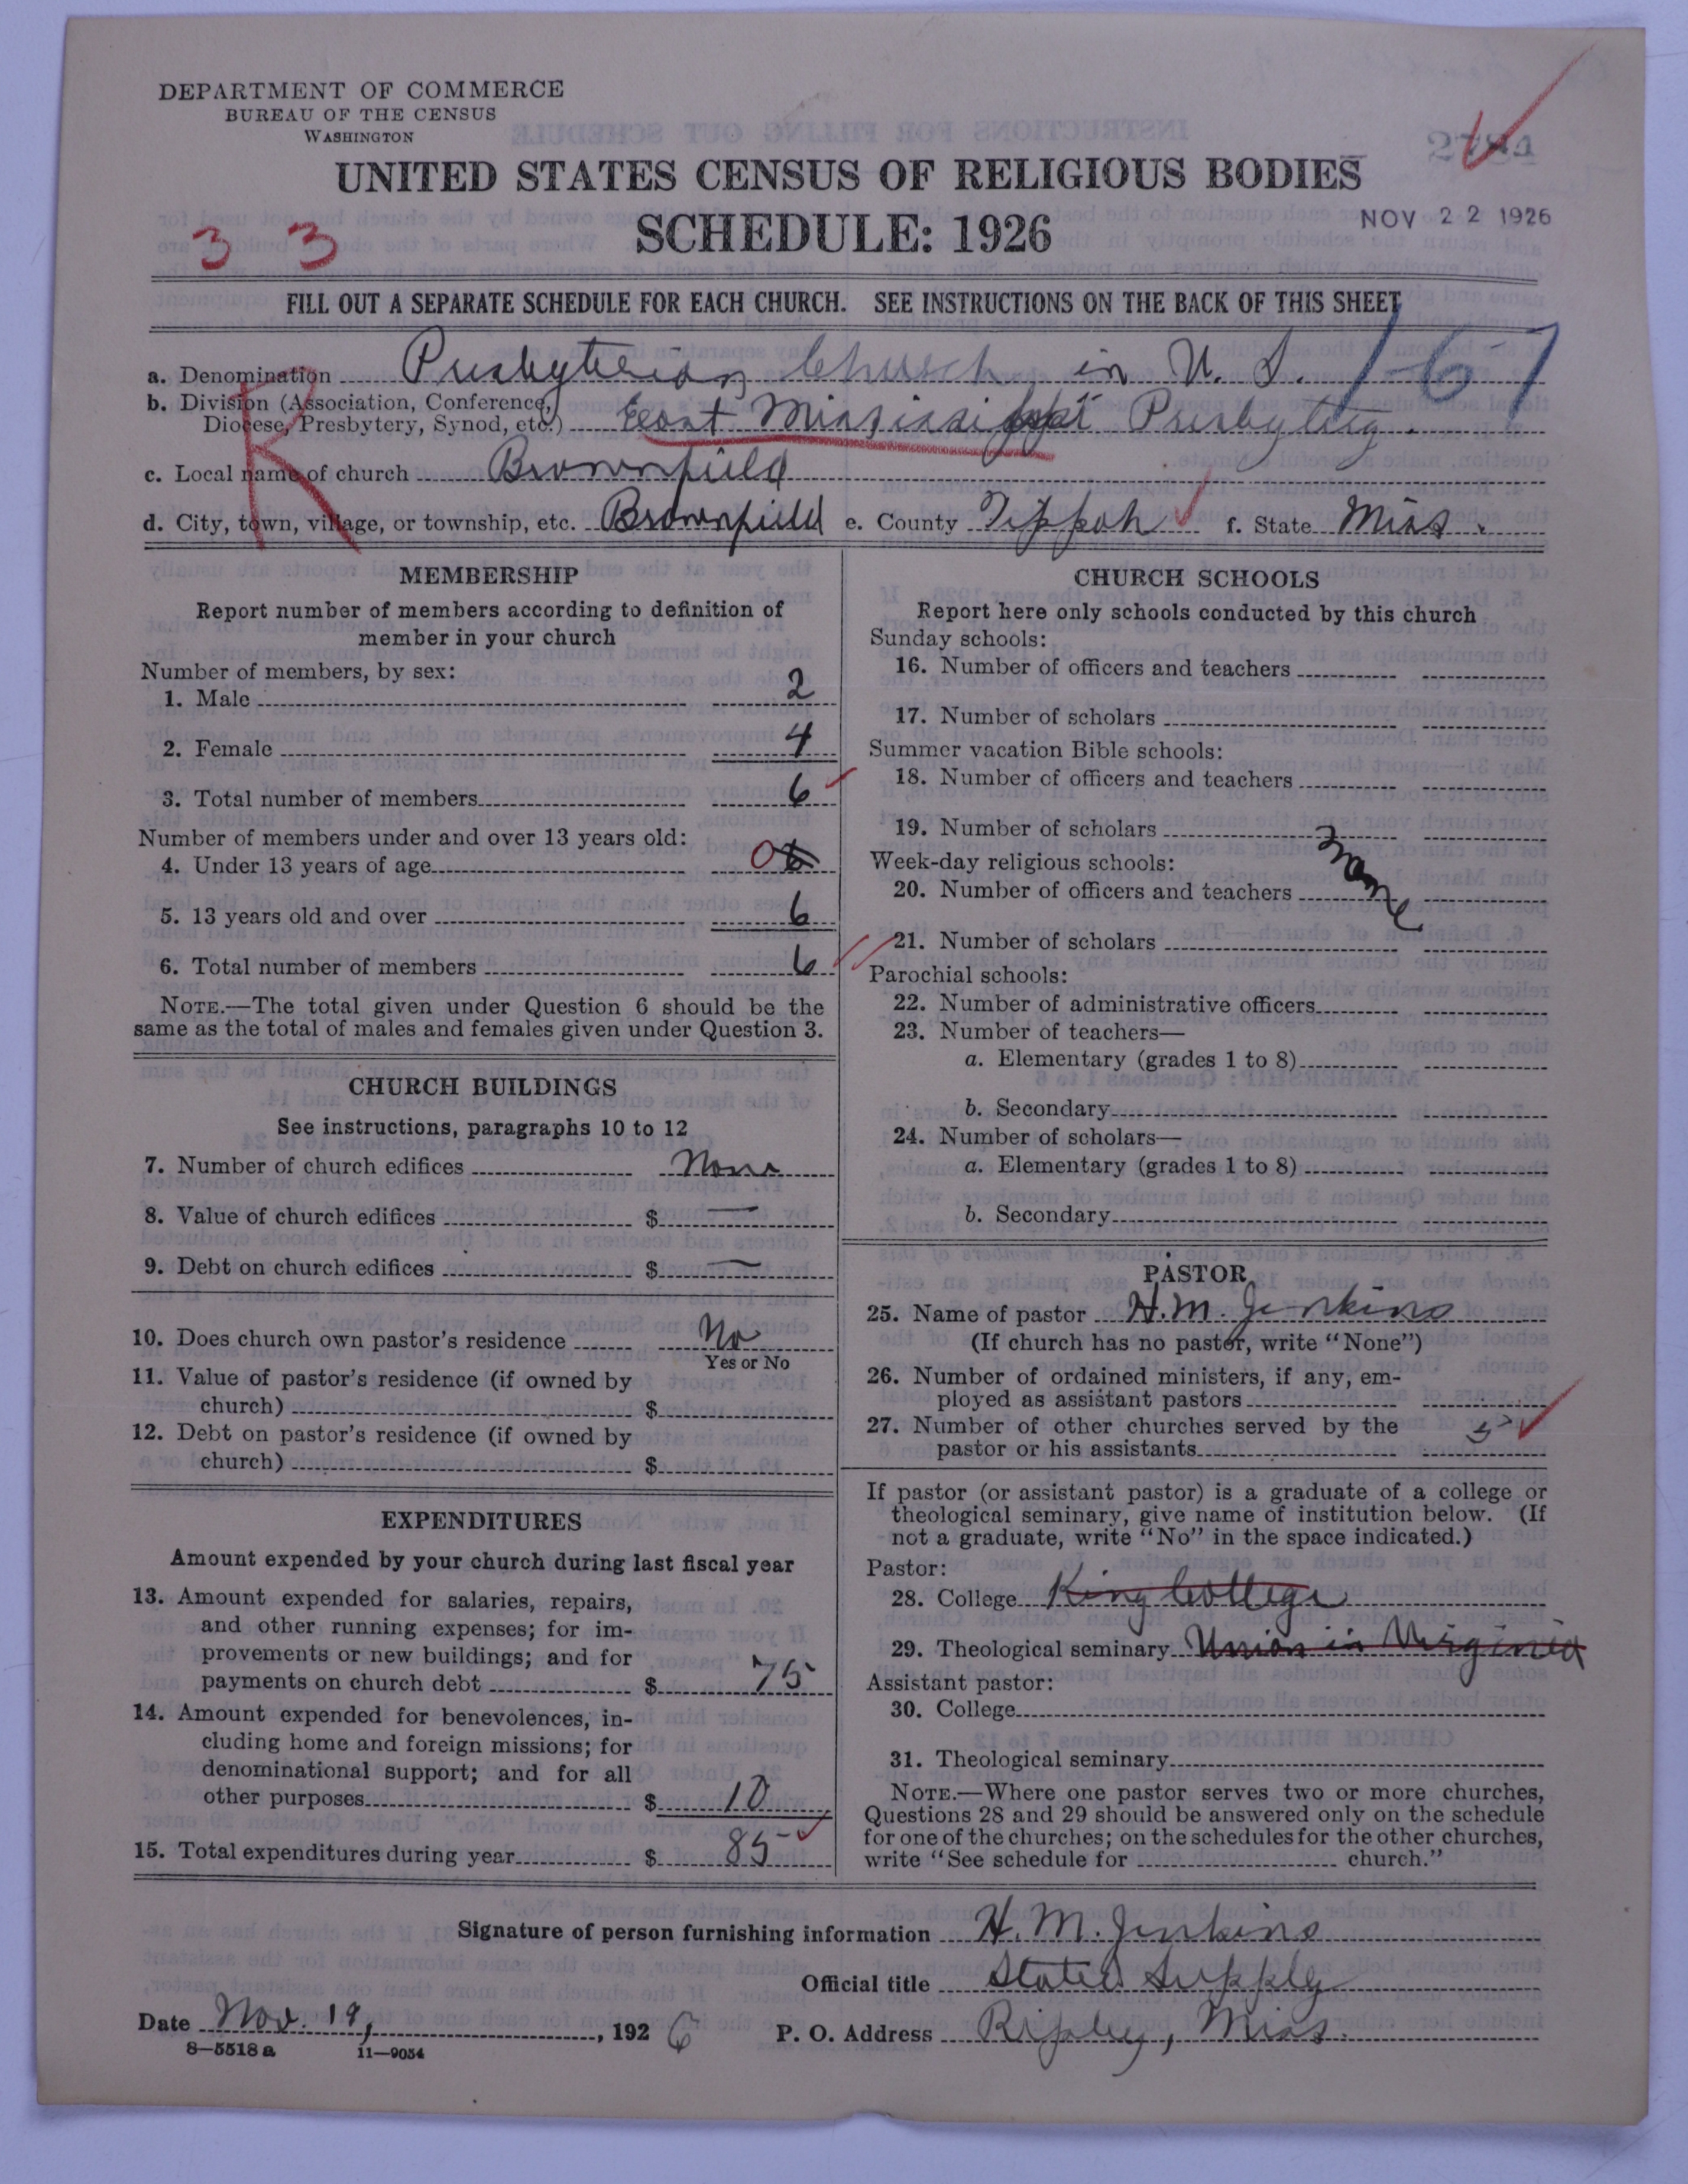 DEPARTMENT OF COMMERCE
BUREAU OF THE CENSUS
WASHINGTON
UNITED STATES CENSUS OF RELIGIOUS BODIES
SCHEDULE: 1926
NOV 22 1926
3 3
FILL OUT A SEPARATE SCHEDULE FOR EACH CHURCH. SEE INSTRUCTIONS ON THE BACK OF THIS SHEET
1-67
a. Denomination Presbyterian Church in U. S.
b. Division (Association, Conference,
Diocese, Presbytery, Synod, etc.) East Mississippi Presbytery.
R
c. Local name of church Brownfield
d. City, town, village, or township, etc. Brownfield e. County Tippah f. State Miss.
MEMBERSHIP
Report number of members according to definition of
member in your church
Number of members, by sex:
1. Male 2
2. Female 4
3. Total number of members 6
Number of members under and over 13 years old:
4. Under 13 years of age 0
5. 13 years old and over 6
6. Total number of members 6
NOTE.—The total given under Question 6 should be the
same as the total of males and females given under Question 3.
CHURCH BUILDINGS
See instructions, paragraphs 10 to 12
7. Number of church edifices None
8. Value of church edifices $ —
9. Debt on church edifices $ —
10. Does church own pastor's residence No
Yes or No
11. Value of pastor's residence (if owned by
church) $
12. Debt on pastor's residence (if owned by
church) $
EXPENDITURES
Amount expended by your church during last fiscal year
13. Amount expended for salaries, repairs,
and other running expenses; for im-
provements or new buildings; and for
payments on church debt $ 75
14. Amount expended for benevolences, in-
cluding home and foreign missions; for
denominational support; and for all
other purposes $ 10
15. Total expenditures during year $ 85
CHURCH SCHOOLS
Report here only schools conducted by this church
Sunday schools:
16. Number of officers and teachers
17. Number of scholars
Summer vacation Bible schools:
18. Number of officers and teachers
19. Number of scholars
None
Week-day religious schools:
20. Number of officers and teachers
21. Number of scholars
Parochial schools:
22. Number of administrative officers
23. Number of teachers—
a. Elementary (grades 1 to 8)
b. Secondary
24. Number of scholars—
a. Elementary (grades 1 to 8)
b. Secondary
PASTOR
25. Name of pastor H. M. Jenkins
(If church has no pastor, write "None")
26. Number of ordained ministers, if any, em-
ployed as assistant pastors
27. Number of other churches served by the
pastor or his assistants 5
If pastor (or assistant pastor) is a graduate of a college or
theological seminary, give name of institution below. (If
not a graduate, write "No" in the space indicated.)
Pastor:
28. College King College
29. Theological seminary Union in Virginia
Assistant pastor:
30. College
31. Theological seminary
NOTE.—Where one pastor serves two or more churches,
Questions 28 and 29 should be answered only on the schedule
for one of the churches; on the schedules for the other churches,
write "See schedule for church."
Signature of person furnishing information H. M. Jenkins
Official title Stated Supply
Date Nov. 19, 1926 P. O. Address Ripley, Miss.
8—5518 a 11—9054